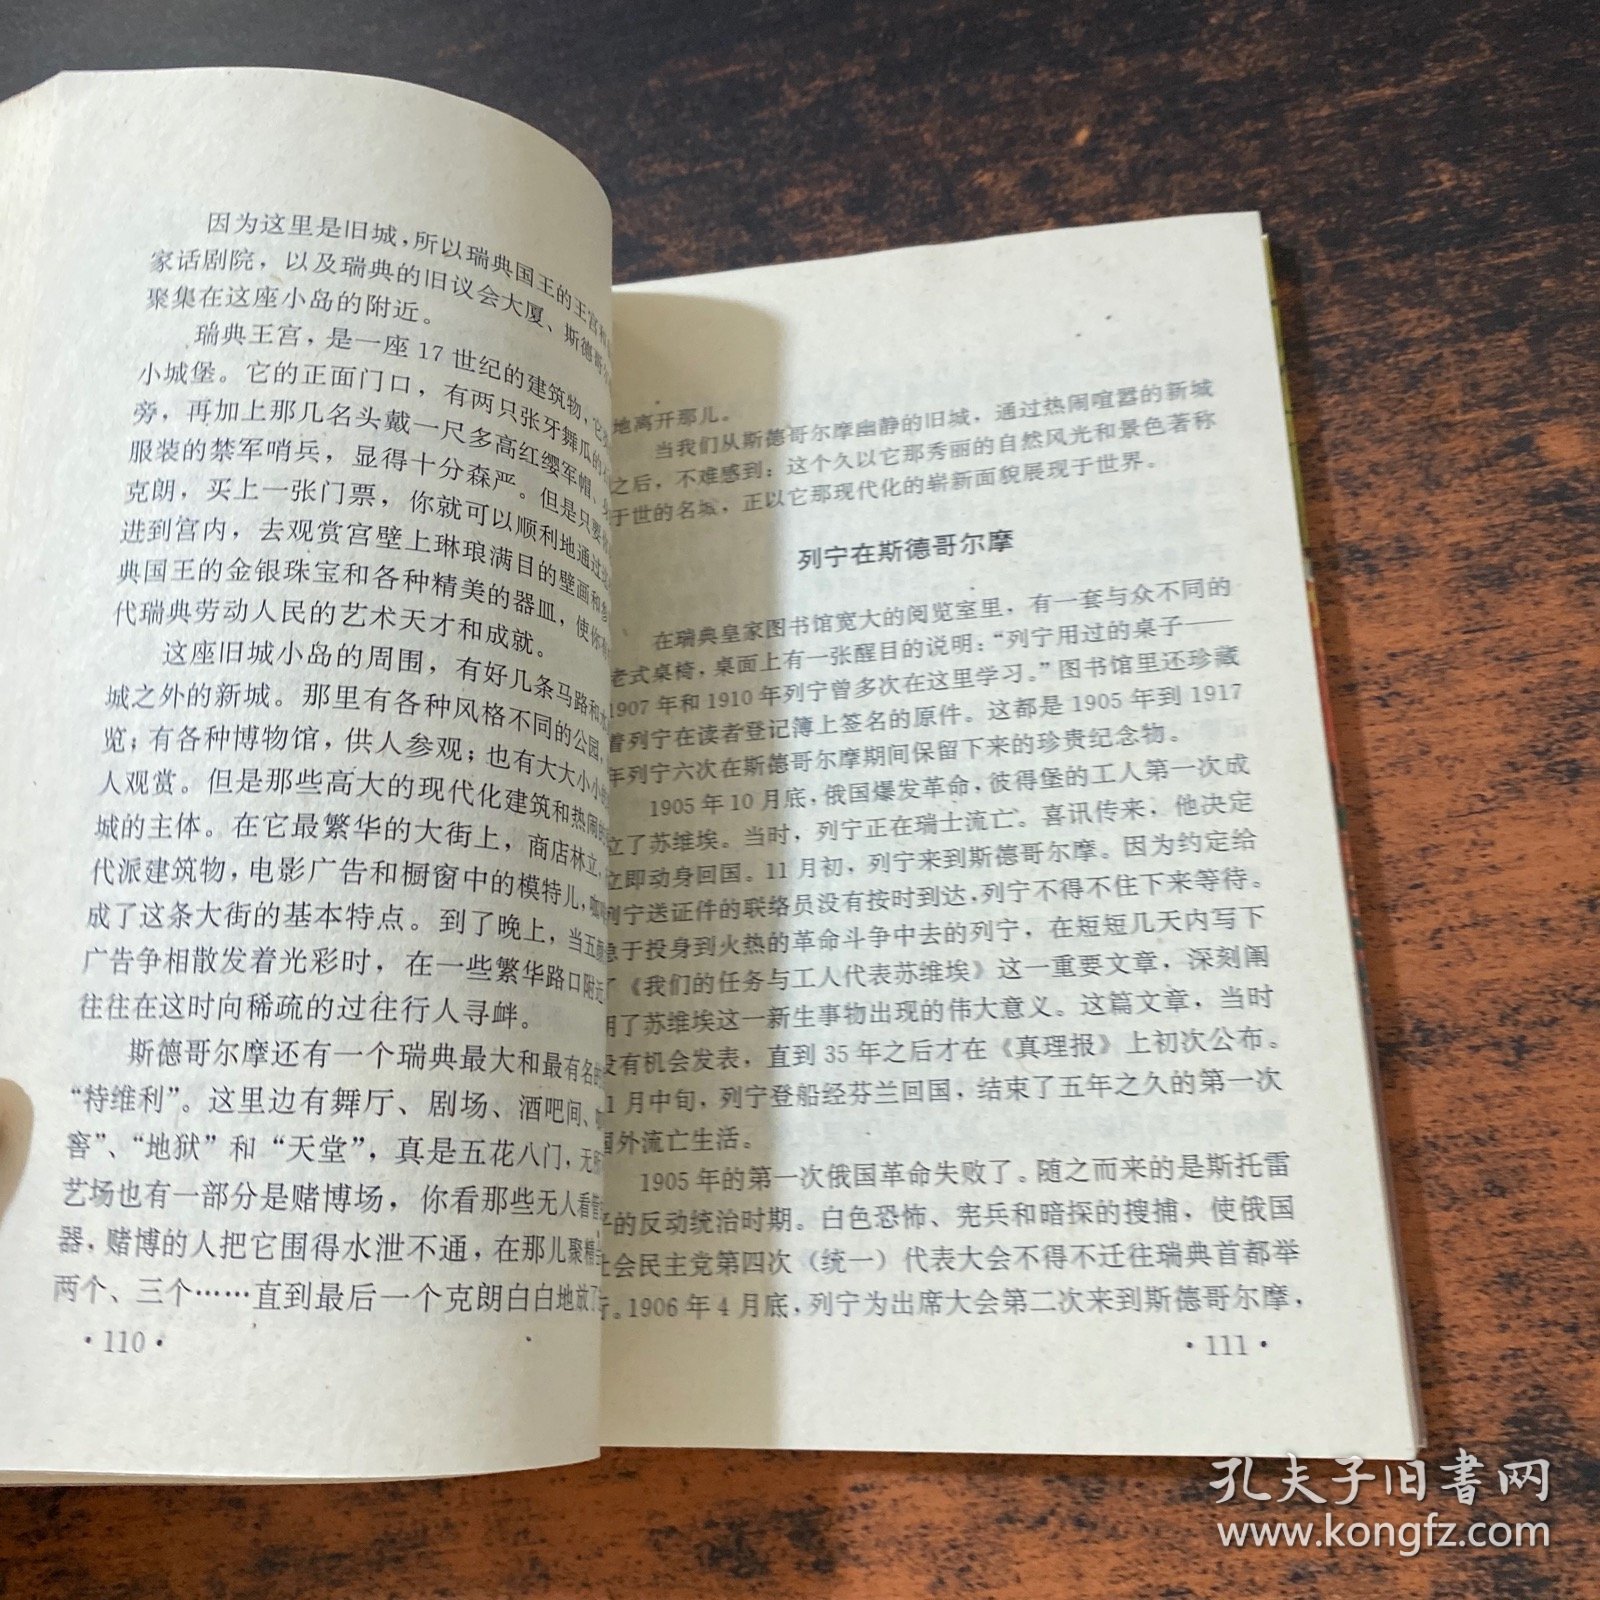 因为这里是旧城，所以瑞典国王的王宫和
家话剧院，以及瑞典的旧议会大厦、斯德哥尔
聚集在这座小岛的附近。
瑞典王宫，是一座17世纪的建筑物，它
小城堡。它的正面门口，有两只张牙舞爪的
旁，再加上那几名头戴一尺多高红缨军帽、
服装的禁军哨兵，显得十分森严。但是只要
克朗，买上一张门票，你就可以顺利地通过
进到宫内，去观赏宫壁上琳琅满目的壁画和
典国王的金银珠宝和各种精美的器皿，使你
代瑞典劳动人民的艺术天才和成就。
这座旧城小岛的周围，有好几条马路和水
城之外的新城。那里有各种风格不同的公园，
览；有各种博物馆，供人参观；也有大大小小的
人观赏。但是那些高大的现代化建筑和热闹的
城的主体。在它最繁华的大街上，商店林立，
代派建筑物，电影广告和橱窗中的模特儿，咖
成了这条大街的基本特点。到了晚上，当五颜
广告争相散发着光彩时，在一些繁华路口附近
往往在这时向稀疏的过往行人寻衅。
斯德哥尔摩还有一个瑞典最大和最有名的
“特维利”。这里边有舞厅、剧场、酒吧间、咖
窖”、“地狱”和“天堂”，真是五花八门，无所
艺场也有一部分是赌博场，你看那些无人看管
器，赌博的人把它围得水泄不通，在那儿聚精
两个、三个……直到最后一个克朗白白地放了
·110·
地离开那儿。
当我们从斯德哥尔摩幽静的旧城，通过热闹喧嚣的新城
之后，不难感到：这个久以它那秀丽的自然风光和景色著称
于世的名城，正以它那现代化的崭新面貌展现于世界。
列宁在斯德哥尔摩
在瑞典皇家图书馆宽大的阅览室里，有一套与众不同的
老式桌椅，桌面上有一张醒目的说明：“列宁用过的桌子——
1907年和1910年列宁曾多次在这里学习。”图书馆里还珍藏
着列宁在读者登记簿上签名的原件。这都是1905年到1917
年列宁六次在斯德哥尔摩期间保留下来的珍贵纪念物。
1905年10月底，俄国爆发革命，彼得堡的工人第一次成
立了苏维埃。当时，列宁正在瑞士流亡。喜讯传来，他决定
立即动身回国。11月初，列宁来到斯德哥尔摩。因为约定给
列宁送证件的联络员没有按时到达，列宁不得不住下来等待。
急于投身到火热的革命斗争中去的列宁，在短短几天内写下
了《我们的任务与工人代表苏维埃》这一重要文章，深刻阐
明了苏维埃这一新生事物出现的伟大意义。这篇文章，当时
没有机会发表，直到35年之后才在《真理报》上初次公布。
11月中旬，列宁登船经芬兰回国，结束了五年之久的第一次
国外流亡生活。
1905年的第一次俄国革命失败了。随之而来的是斯托雷
平的反动统治时期。白色恐怖、宪兵和暗探的搜捕，使俄国
社会民主党第四次（统一）代表大会不得不迁往瑞典首都举
行。1906年4月底，列宁为出席大会第二次来到斯德哥尔摩，
·111·
孔夫子旧书网
www.kongfz.com